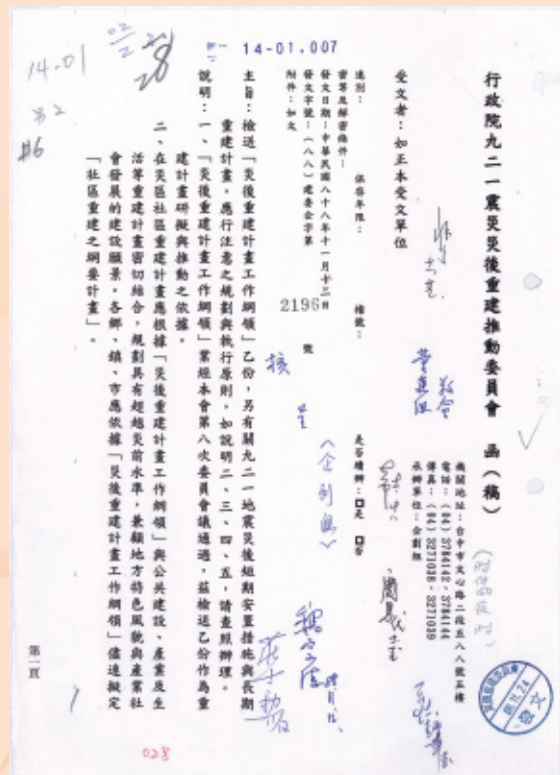 14-01.007
14-01
#6
行政院九二一震災災後重建推動委員會　函（稿）
機關地址：台中市文心路二段五八八號五樓
電話：(04) 3784142、3784144
傳真：(04) 3271038、3271039
承辦單位：企劃組
受文者：如正本受文單位
速別：
密等及解密條件：
保存年限：
檔號：
發文日期：中華民國八十八年十一月十二日
發文字號：(八八)建委企字第2196號
附件：如文
是否續辦：□是　□否
主旨：檢送「災後重建計畫工作綱領」乙份，另有關九二一地震災後短期安置措施與長期
重建計畫，應行注意之規劃與執行原則，如說明二、三、四、五，請查照辦理。
說明：一、「災後重建計畫工作綱領」業經本會第八次委員會議通過，茲檢送乙份作為重
建計畫研擬與推動之依據。
二、在災區社區重建計畫應根據「災後重建計畫工作綱領」與公共建設、產業及生
活等重建計畫密切結合，規劃具有超越災前水準，兼顧地方特色風貌與產業社
會發展的建設願景。各鄉、鎮、市應依據「災後重建計畫工作綱領」儘速擬定
「社區重建之綱要計畫」。
第一頁
028